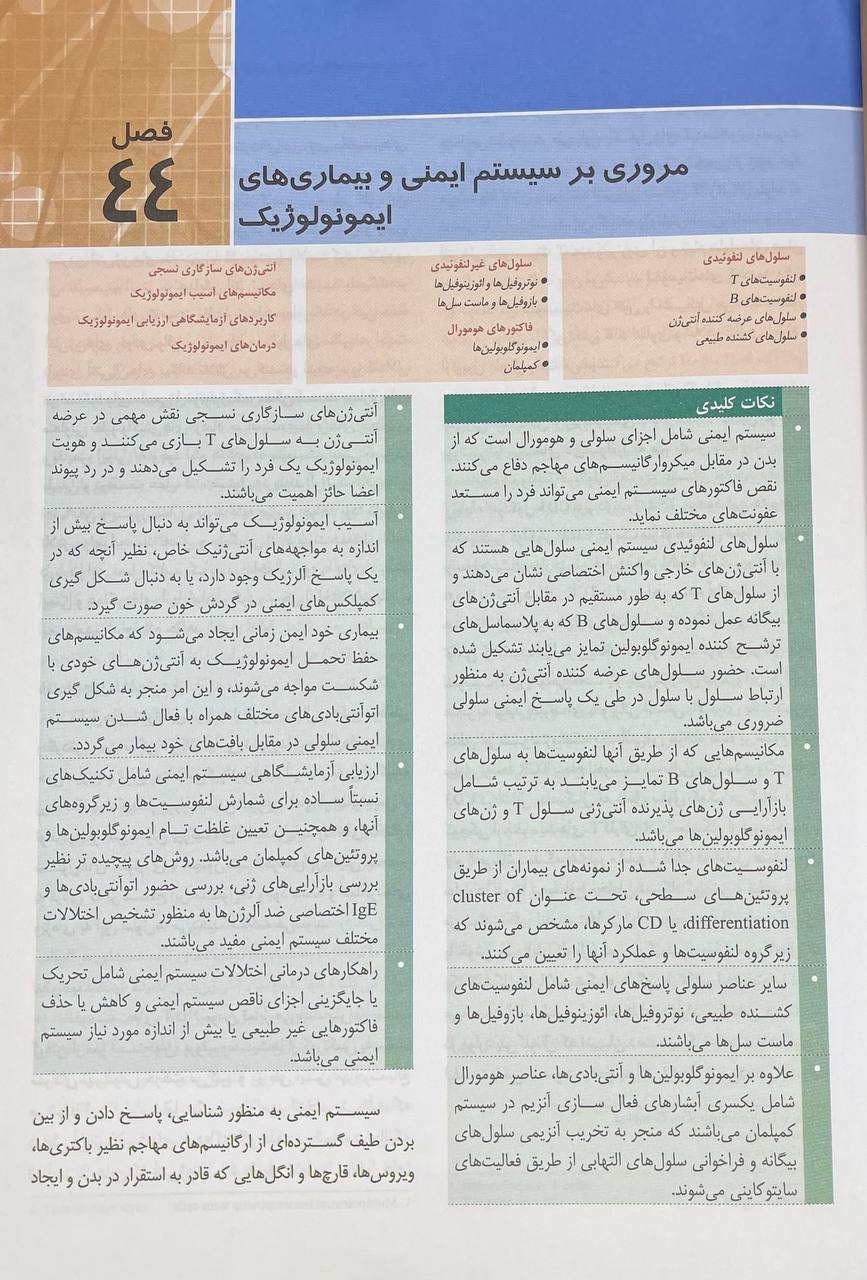 فصل
٤٤
مروری بر سیستم ایمنی و بیماری‌های
ایمونولوژیک
سلول‌های لنفوئیدی
● لنفوسیت‌های T
● لنفوسیت‌های B
● سلول‌های عرضه کننده آنتی‌ژن
● سلول‌های کشنده طبیعی
سلول‌های غیرلنفوئیدی
● نوتروفیل‌ها و ائوزینوفیل‌ها
● بازوفیل‌ها و ماست سل‌ها
فاکتورهای هومورال
● ایمونوگلوبولین‌ها
● کمپلمان
آنتی‌ژن‌های سازگاری نسجی
مکانیسم‌های آسیب ایمونولوژیک
کاربردهای آزمایشگاهی ارزیابی ایمونولوژیک
درمان‌های ایمونولوژیک
نکات کلیدی
• سیستم ایمنی شامل اجزای سلولی و هومورال است که از
بدن در مقابل میکروارگانیسم‌های مهاجم دفاع می‌کنند.
نقص فاکتورهای سیستم ایمنی می‌تواند فرد را مستعد
عفونت‌های مختلف نماید.
• سلول‌های لنفوئیدی سیستم ایمنی سلول‌هایی هستند که
با آنتی‌ژن‌های خارجی واکنش اختصاصی نشان می‌دهند و
از سلول‌های T که به طور مستقیم در مقابل آنتی‌ژن‌های
بیگانه عمل نموده و سلول‌های B که به پلاسماسل‌های
ترشح کننده ایمونوگلوبولین تمایز می‌یابند تشکیل شده
است. حضور سلول‌های عرضه کننده آنتی‌ژن به منظور
ارتباط سلول با سلول در طی یک پاسخ ایمنی سلولی
ضروری می‌باشد.
• مکانیسم‌هایی که از طریق آنها لنفوسیت‌ها به سلول‌های
T و سلول‌های B تمایز می‌یابند به ترتیب شامل
بازآرایی ژن‌های پذیرنده آنتی‌ژنی سلول T و ژن‌های
ایمونوگلوبولین‌ها می‌باشد.
• لنفوسیت‌های جدا شده از نمونه‌های بیماران از طریق
پروتئین‌های سطحی، تحت عنوان cluster of
differentiation، یا CD مارکرها، مشخص می‌شوند که
زیرگروه لنفوسیت‌ها و عملکرد آنها را تعیین می‌کنند.
• سایر عناصر سلولی پاسخ‌های ایمنی شامل لنفوسیت‌های
کشنده طبیعی، نوتروفیل‌ها، ائوزینوفیل‌ها، بازوفیل‌ها و
ماست سل‌ها می‌باشند.
• علاوه بر ایمونوگلوبولین‌ها و آنتی‌بادی‌ها، عناصر هومورال
شامل یکسری آبشارهای فعال سازی آنزیم در سیستم
کمپلمان می‌باشند که منجر به تخریب آنزیمی سلول‌های
بیگانه و فراخوانی سلول‌های التهابی از طریق فعالیت‌های
سایتوکاینی می‌شوند.
• آنتی‌ژن‌های سازگاری نسجی نقش مهمی در عرضه
آنتی‌ژن به سلول‌های T بازی می‌کنند و هویت
ایمونولوژیک یک فرد را تشکیل می‌دهند و در رد پیوند
اعضا حائز اهمیت می‌باشند.
• آسیب ایمونولوژیک می‌تواند به دنبال پاسخ بیش از
اندازه به مواجهه‌های آنتی‌ژنیک خاص، نظیر آنچه که در
یک پاسخ آلرژیک وجود دارد، یا به دنبال شکل گیری
کمپلکس‌های ایمنی در گردش خون صورت گیرد.
• بیماری خود ایمن زمانی ایجاد می‌شود که مکانیسم‌های
حفظ تحمل ایمونولوژیک به آنتی‌ژن‌های خودی با
شکست مواجه می‌شوند، و این امر منجر به شکل گیری
اتوآنتی‌بادی‌های مختلف همراه با فعال شدن سیستم
ایمنی سلولی در مقابل بافت‌های خود بیمار می‌گردد.
• ارزیابی آزمایشگاهی سیستم ایمنی شامل تکنیک‌های
نسبتاً ساده برای شمارش لنفوسیت‌ها و زیرگروه‌های
آنها، و همچنین تعیین غلظت تام ایمونوگلوبولین‌ها و
پروتئین‌های کمپلمان می‌باشد. روش‌های پیچیده تر نظیر
بررسی بازآرایی‌های ژنی، بررسی حضور اتوآنتی‌بادی‌ها و
IgE اختصاصی ضد آلرژن‌ها به منظور تشخیص اختلالات
مختلف سیستم ایمنی مفید می‌باشند.
• راهکارهای درمانی اختلالات سیستم ایمنی شامل تحریک
یا جایگزینی اجزای ناقص سیستم ایمنی و کاهش یا حذف
فاکتورهایی غیر طبیعی یا بیش از اندازه مورد نیاز سیستم
ایمنی می‌باشد.
سیستم ایمنی به منظور شناسایی، پاسخ دادن و از بین
بردن طیف گسترده‌ای از ارگانیسم‌های مهاجم نظیر باکتری‌ها،
ویروس‌ها، قارچ‌ها و انگل‌هایی که قادر به استقرار در بدن و ایجاد